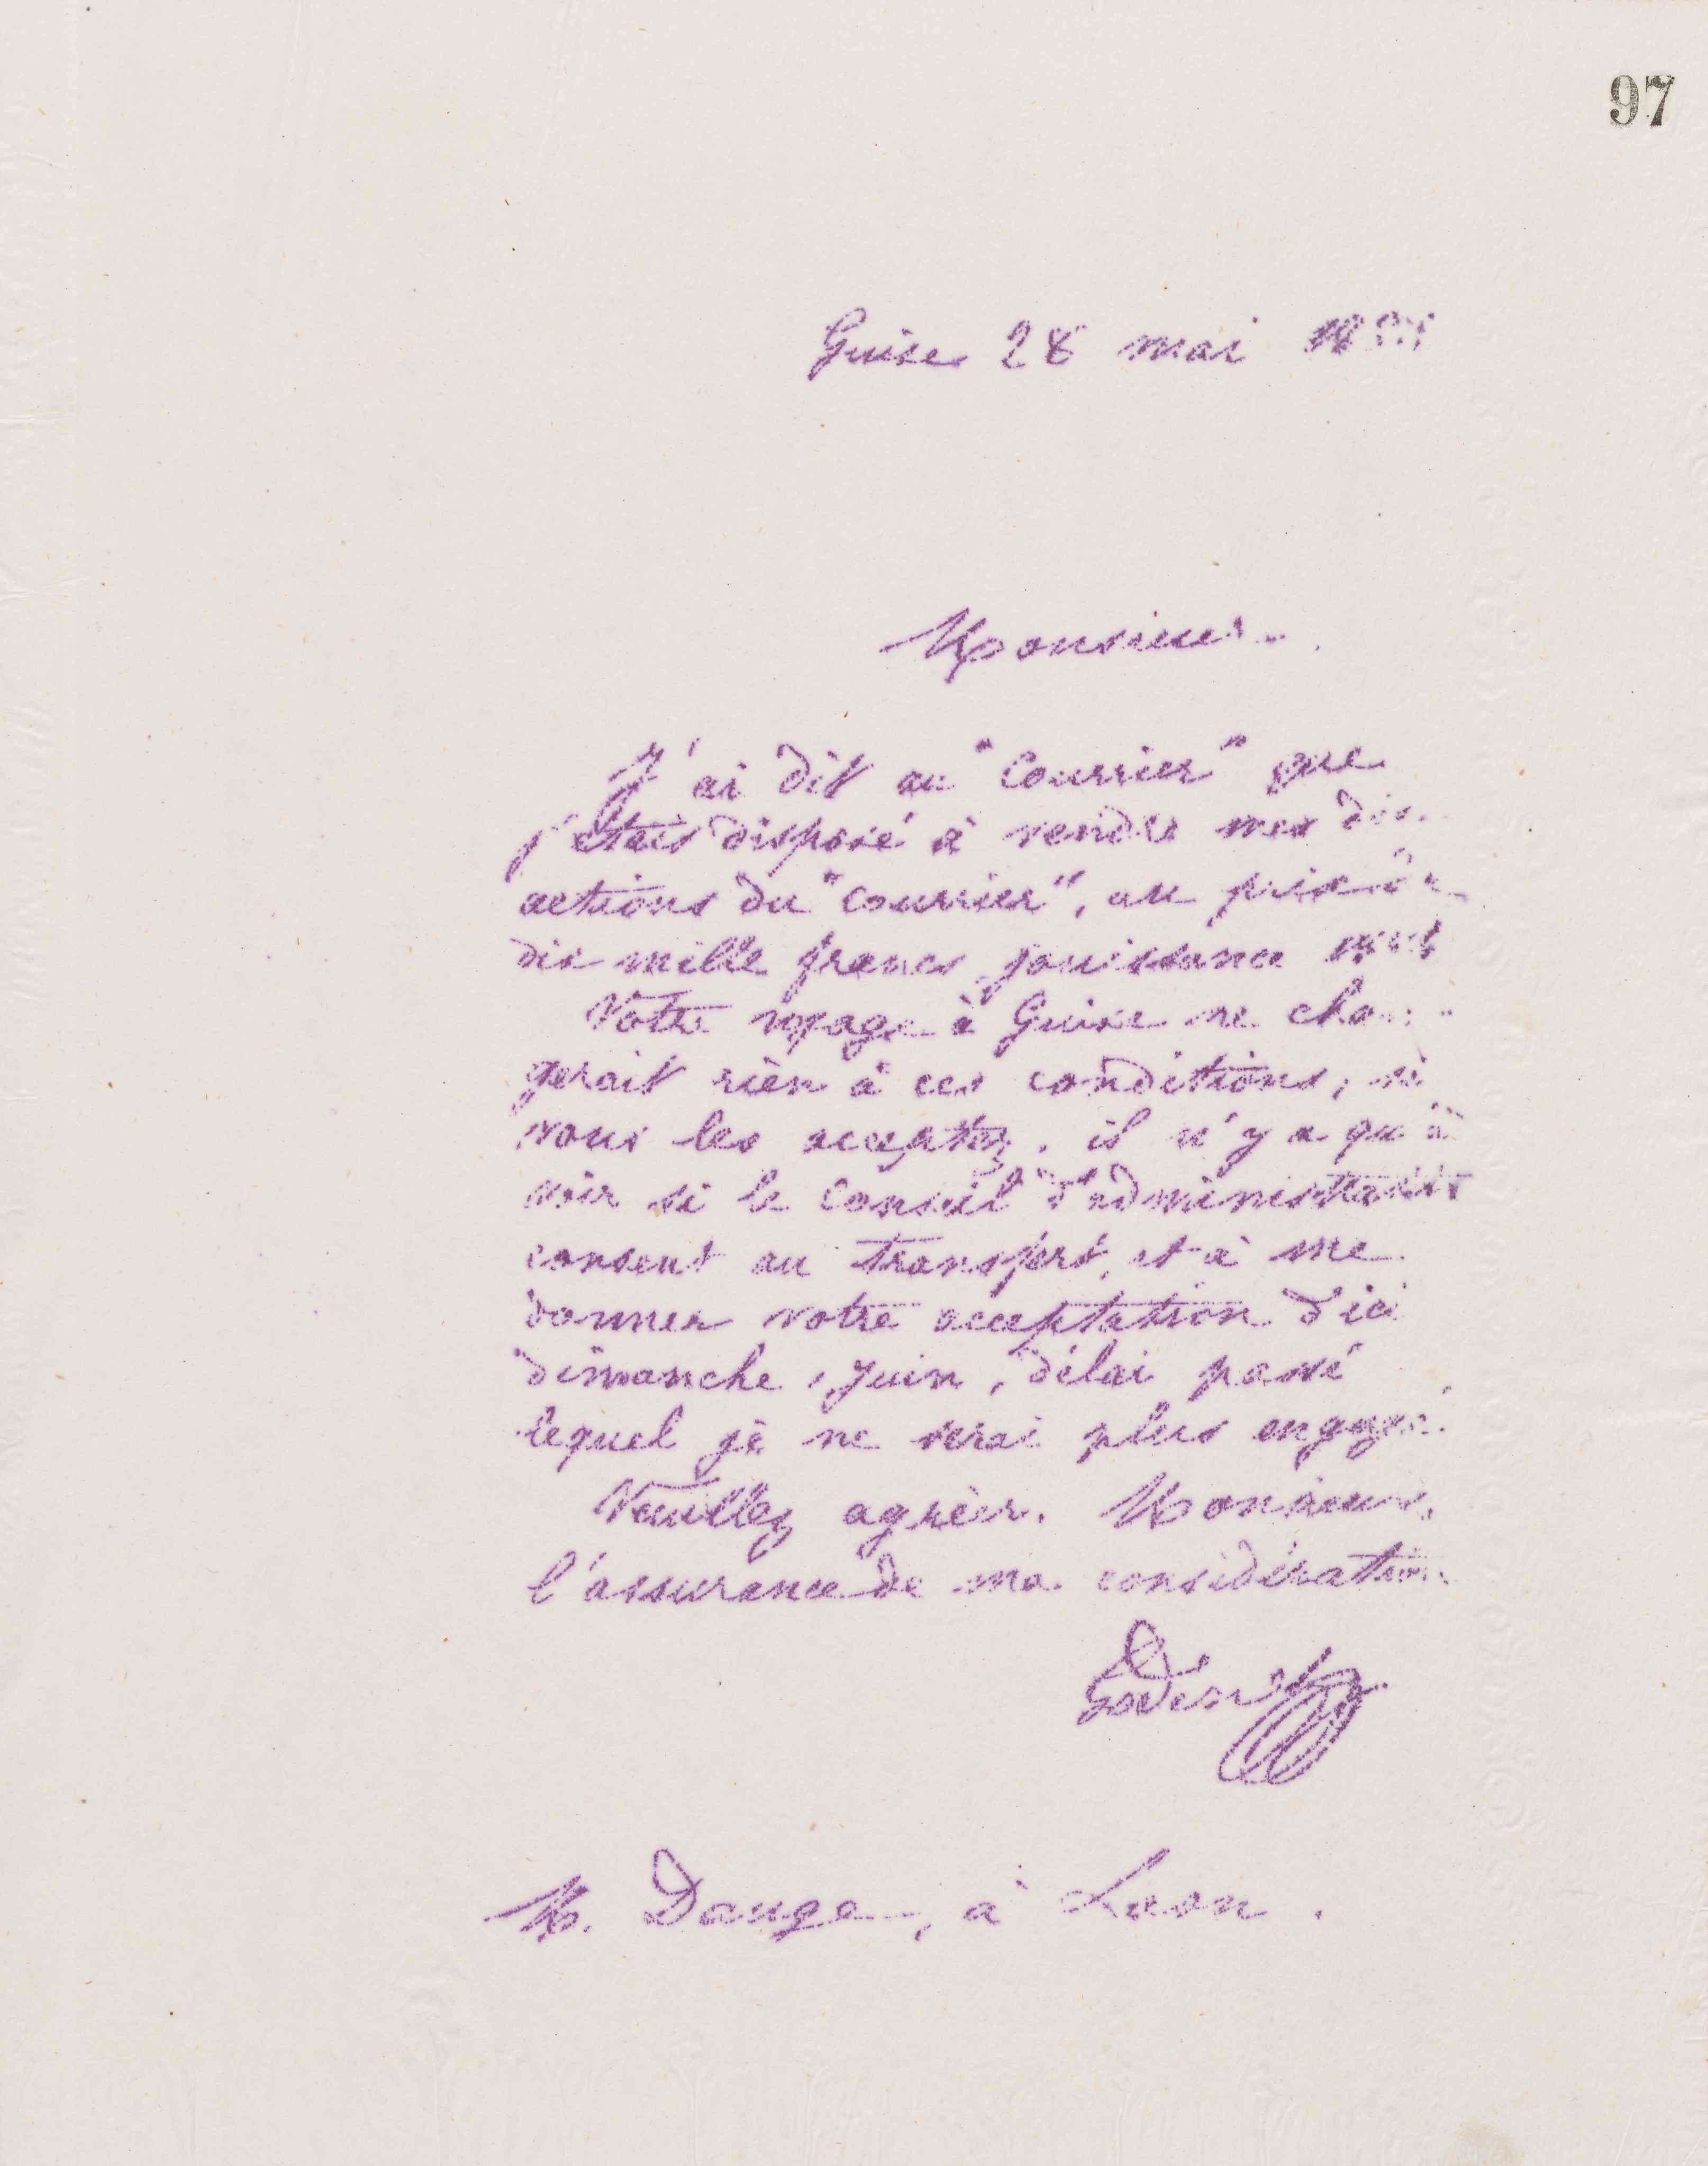 97
Guise 28 mai
Monsieur
J'ai dit au "Courrier" que
j'étais disposé à vendre mes dix
actions du "Courrier", au prix de
dix mille francs jouissance
Votre voyage à Guise ne chan-
gerait rien à ces conditions ; si
vous les acceptez, il n'y a qu'à
voir si le Conseil d'administration
consent au transfert, et à me
donner votre acceptation d'ici
dimanche juin, délai passé
lequel je ne serai plus engagé.
Veuillez agréer, Monsieur,
l'assurance de ma considération
Godin
M. Dauge, à Laon.